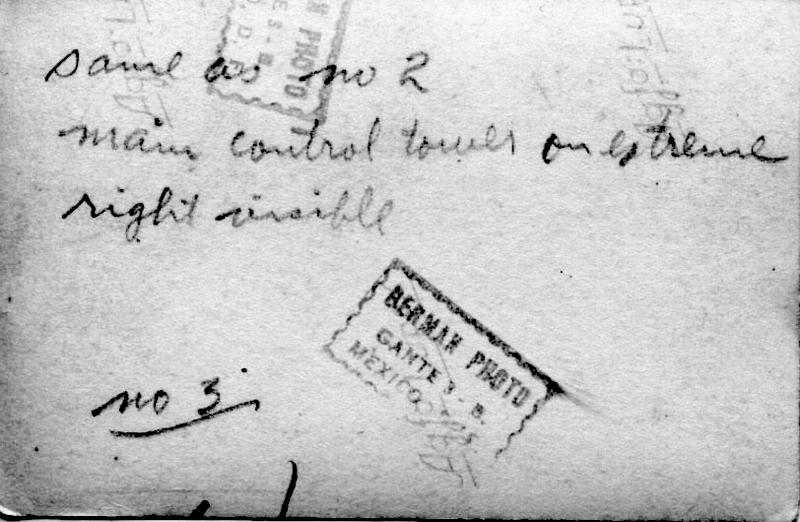 same as no 2
main control tower on extreme
right visible
BERMAN PHOTO
GANTE
MEXICO
no 3